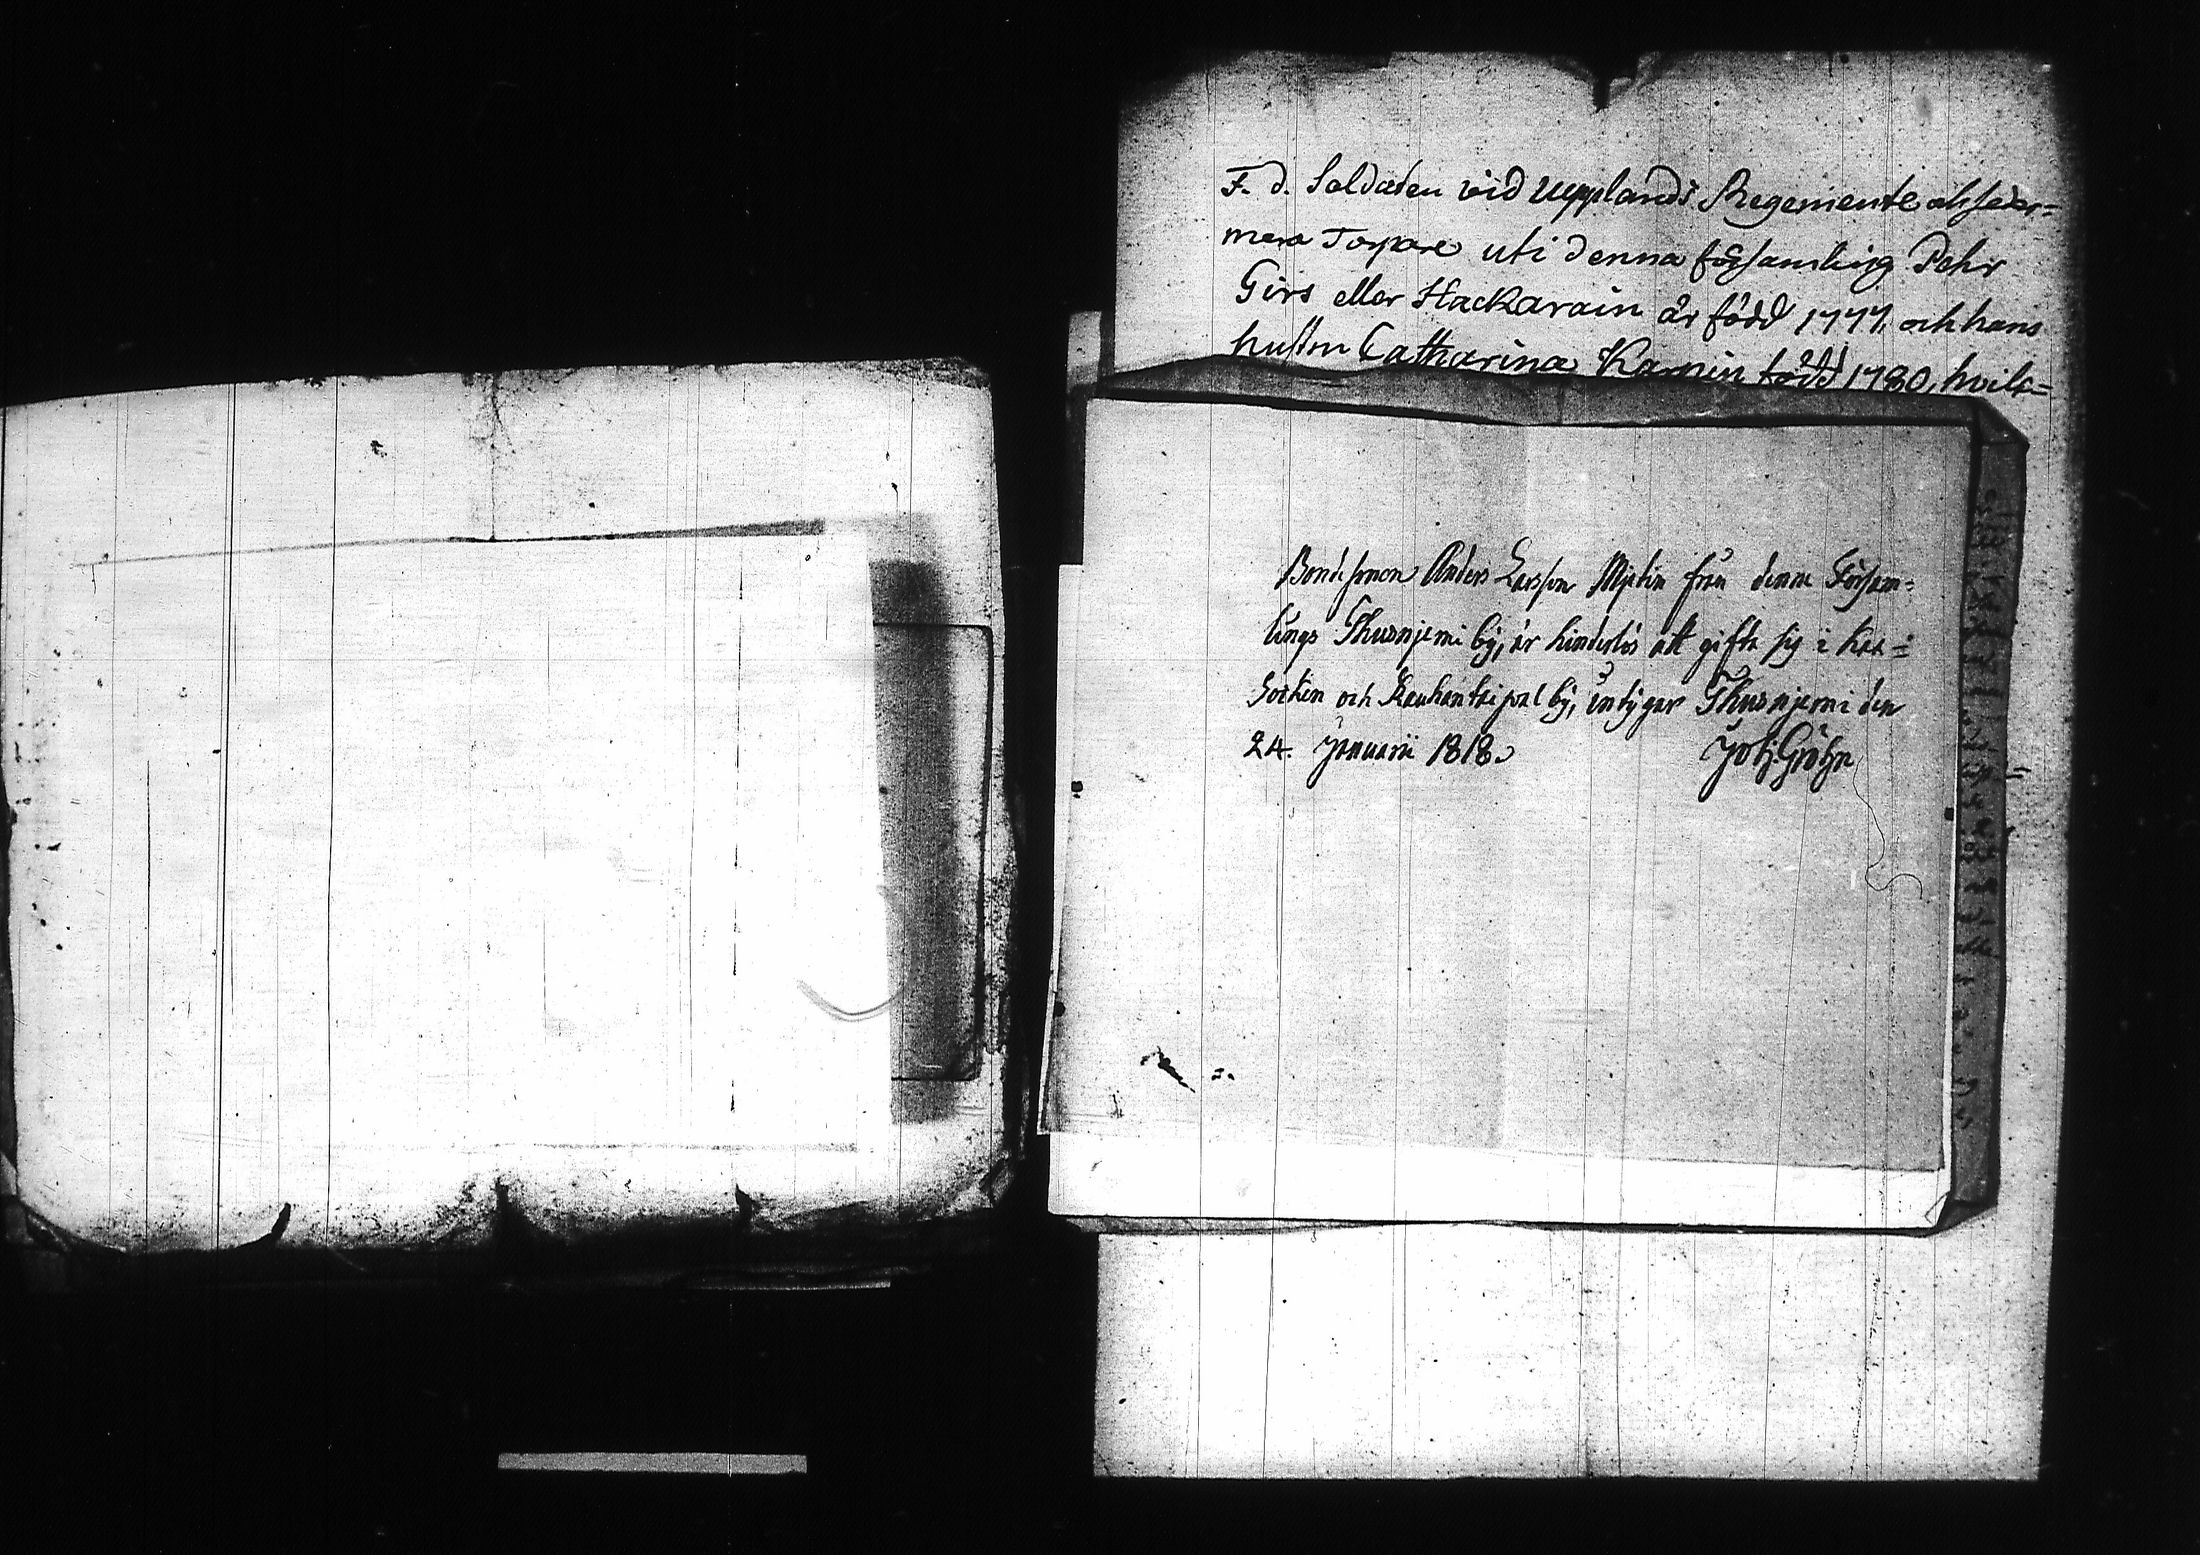 F. d. Soldaten vid Upplands Regemente och seder=
mera Torpare uti denna församling Pehr
Girs eller Hackarain är född 1777, och hans
hustru Catharina Karpin född 1780, hvilc=
Bondesonen Anders Larsson Mietin från denne Försam=
lings Thusnjemi by, är hinderlös att gifta sig i Kaa=
Socken och Rauhantaipal by, intygar Thusnjemi den
24. Januarii 1818.
Joh: Gröhn